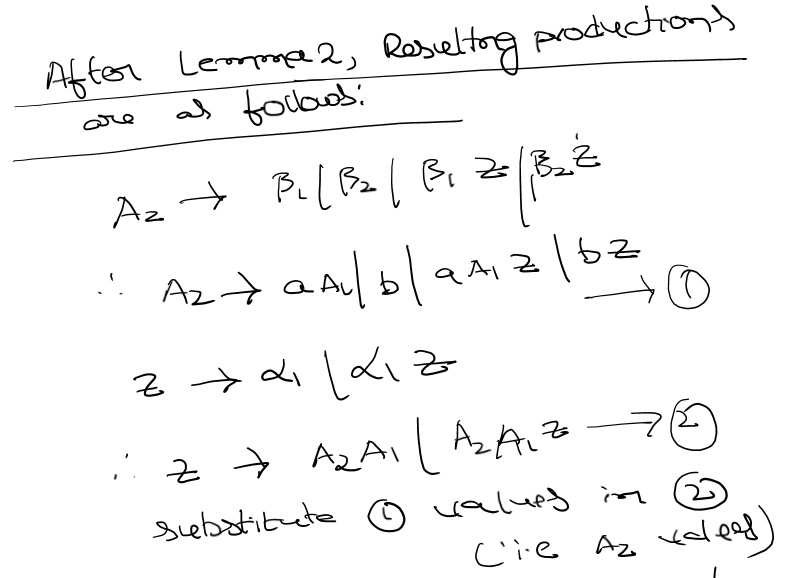 After Lemma 2, Resulting productions
are as follows:
A₂ → β₁ | β₂ | β₁ Z | β₂ Z
∴ A₂ → aA₁ | b | aA₁ Z | bZ → ①
Z → α₁ | α₁ Z
∴ Z → A₂A₁ | A₂A₁Z → ②
substitute ① values in ②
(i.e A₂ values)